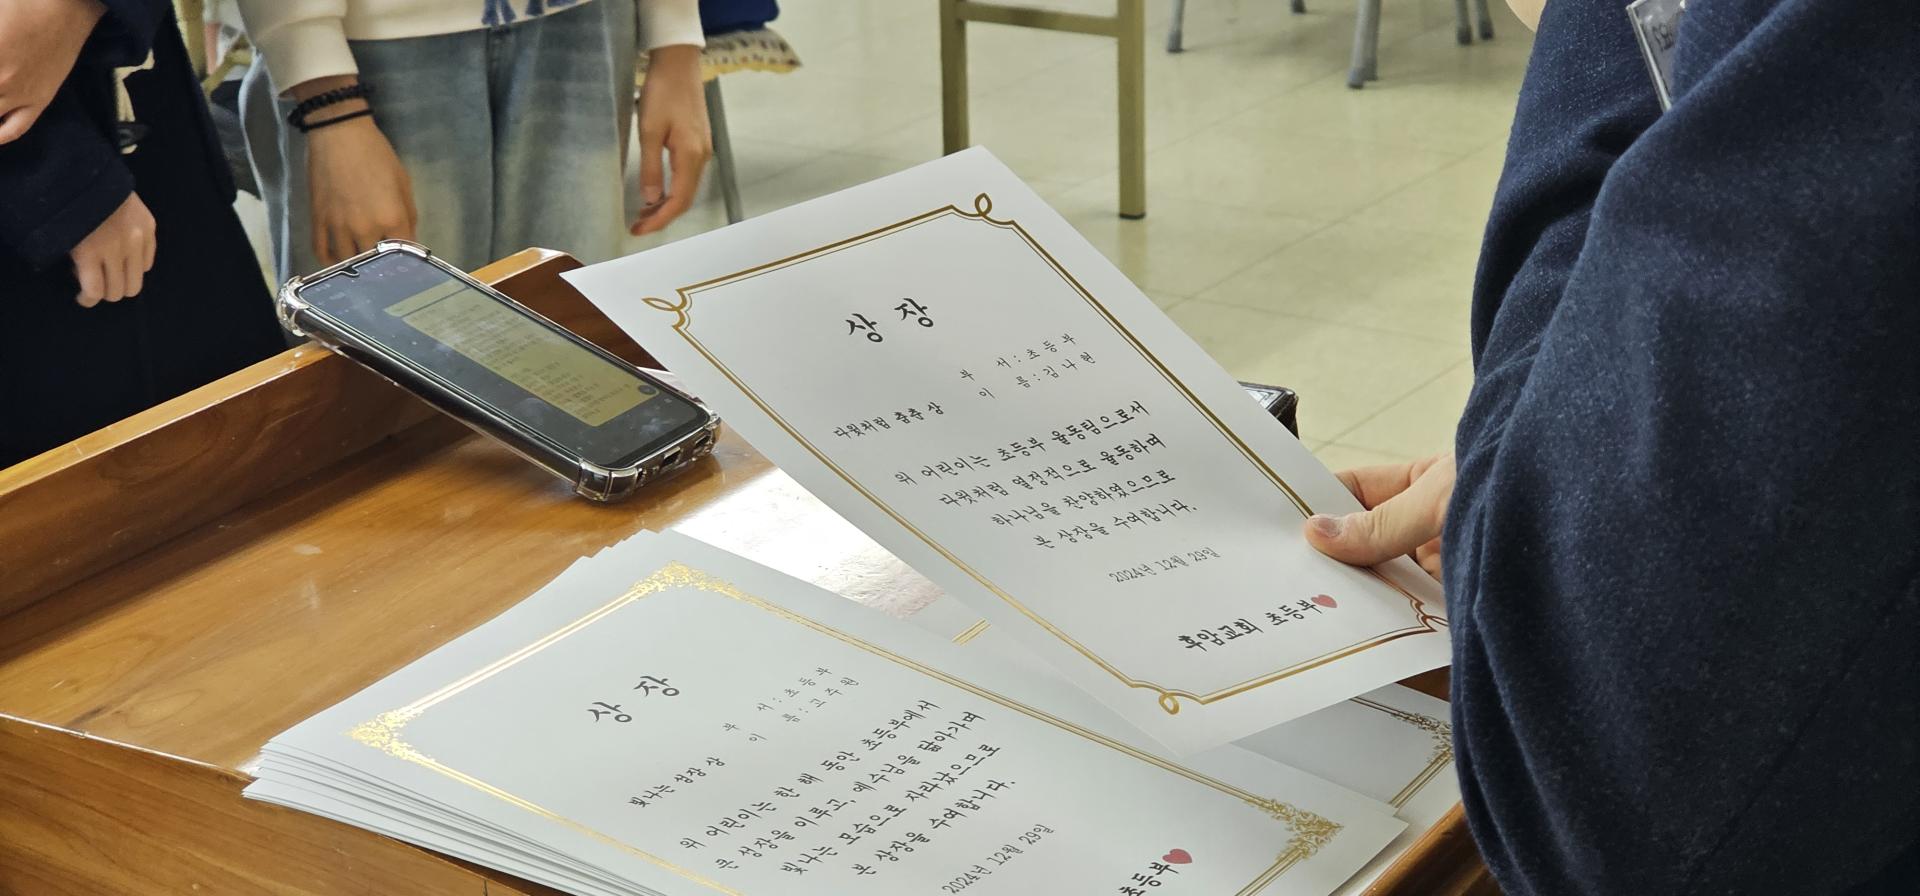 상 장
부 서 : 초 등 부
이 름 : 김 나 현
다윗처럼 춤춘 상
위 어린이는 초등부 율동팀으로서
다윗처럼 열정적으로 율동하며
하나님을 찬양하였으므로
본 상장을 수여합니다.
2024년 12월 29일
후암교회 초등부❤
상 장
부 서 : 초 등 부
이 름 : 고 주 원
빛나는 성장 상
위 어린이는 한 해 동안 초등부에서
큰 성장을 이루고, 예수님을 닮아가며
빛나는 모습으로 자라났으므로
본 상장을 수여합니다.
2024년 12월 29일
초등부❤